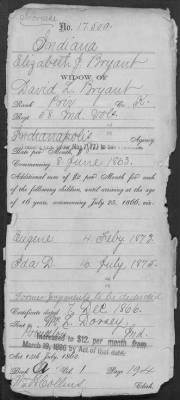 No. 17.500.
Indiana
Elizabeth J. Bryant
WIDOW OF
David L. Bryant
Rank Priv Co. K.
Regt 58 Ind. Vols
Indianapolis Agency
Rate per Month, 8
Commencing 8 June 1863.
Additional sum of $2 per Month for each
of the following children, until arriving at the age
of 16 years, commencing July 25, 1866, viz:
Eugene 4 Feby 1873.
Ida D. 16 July 1875.
Former payments to be deducted
Certificate dated 7 Dec. 1866.
Sent to Dorsey,
Ind.
Increased to $12. per month from
March 19, 1886 by Act of that date.
Act 14th July 1862.
Book A Vol. 1 Page 194
Collins, Clerk.